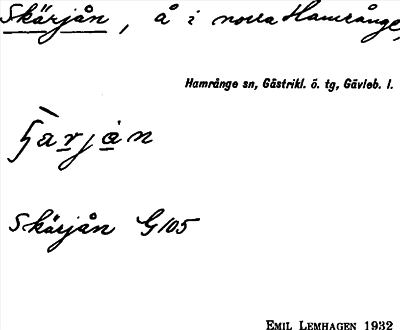 Skärjån, å i norra Hamrånge,
Hamrånge sn, Gästrikl. ö. tg, Gävleb. l.
Skärjån G105
EMIL LEMHAGEN 1932